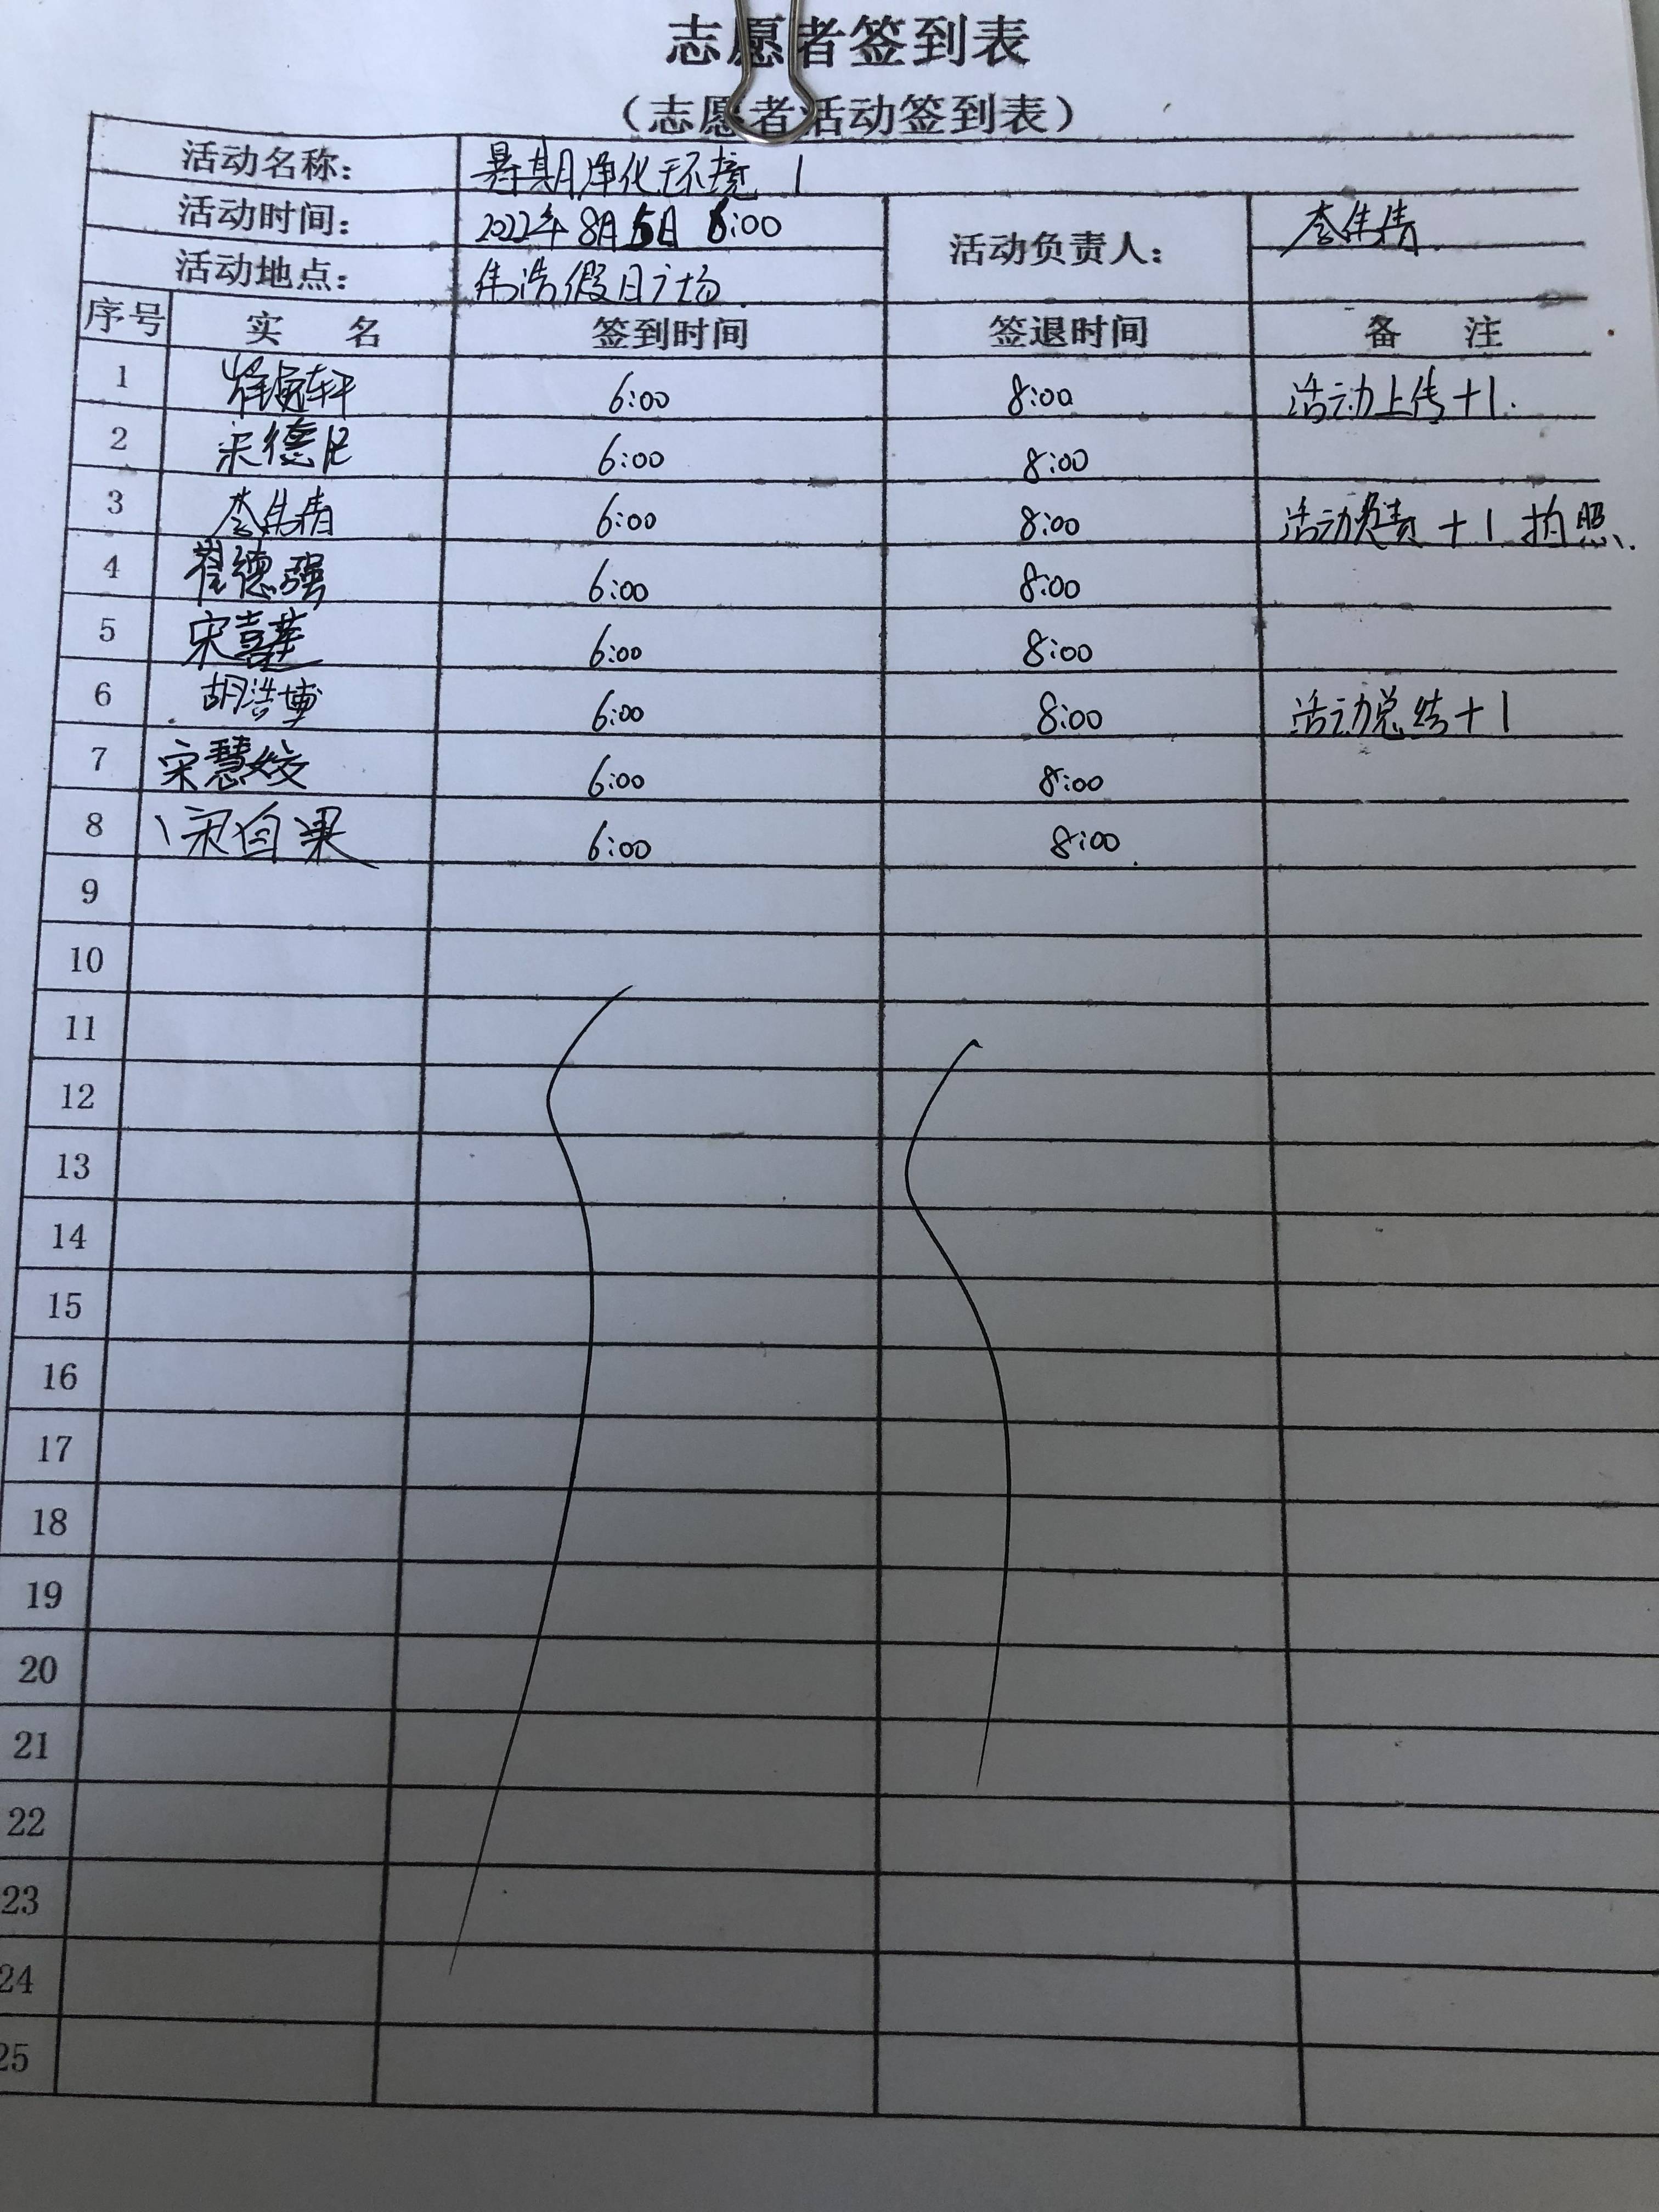 志愿者签到表
（志愿者活动签到表）
活动名称： 暑期净化环境 1
活动时间： 2022年8月5日 6:00 活动负责人： 李伟倩
活动地点： 伟浩假日广场
序号 实 名 签到时间 签退时间 备 注
1 6:00 8:00 活动上传+1.
2 宋德 6:00 8:00
3 李伟倩 6:00 8:00 活动负责+1 拍照.
4 翟德强 6:00 8:00
5 宋喜莲 6:00 8:00
6 胡浩博 6:00 8:00 活动总结+1
7 宋慧姣 6:00 8:00
8 宋自果 6:00 8:00
9
10
11
12
13
14
15
16
17
18
19
20
21
22
23
24
25